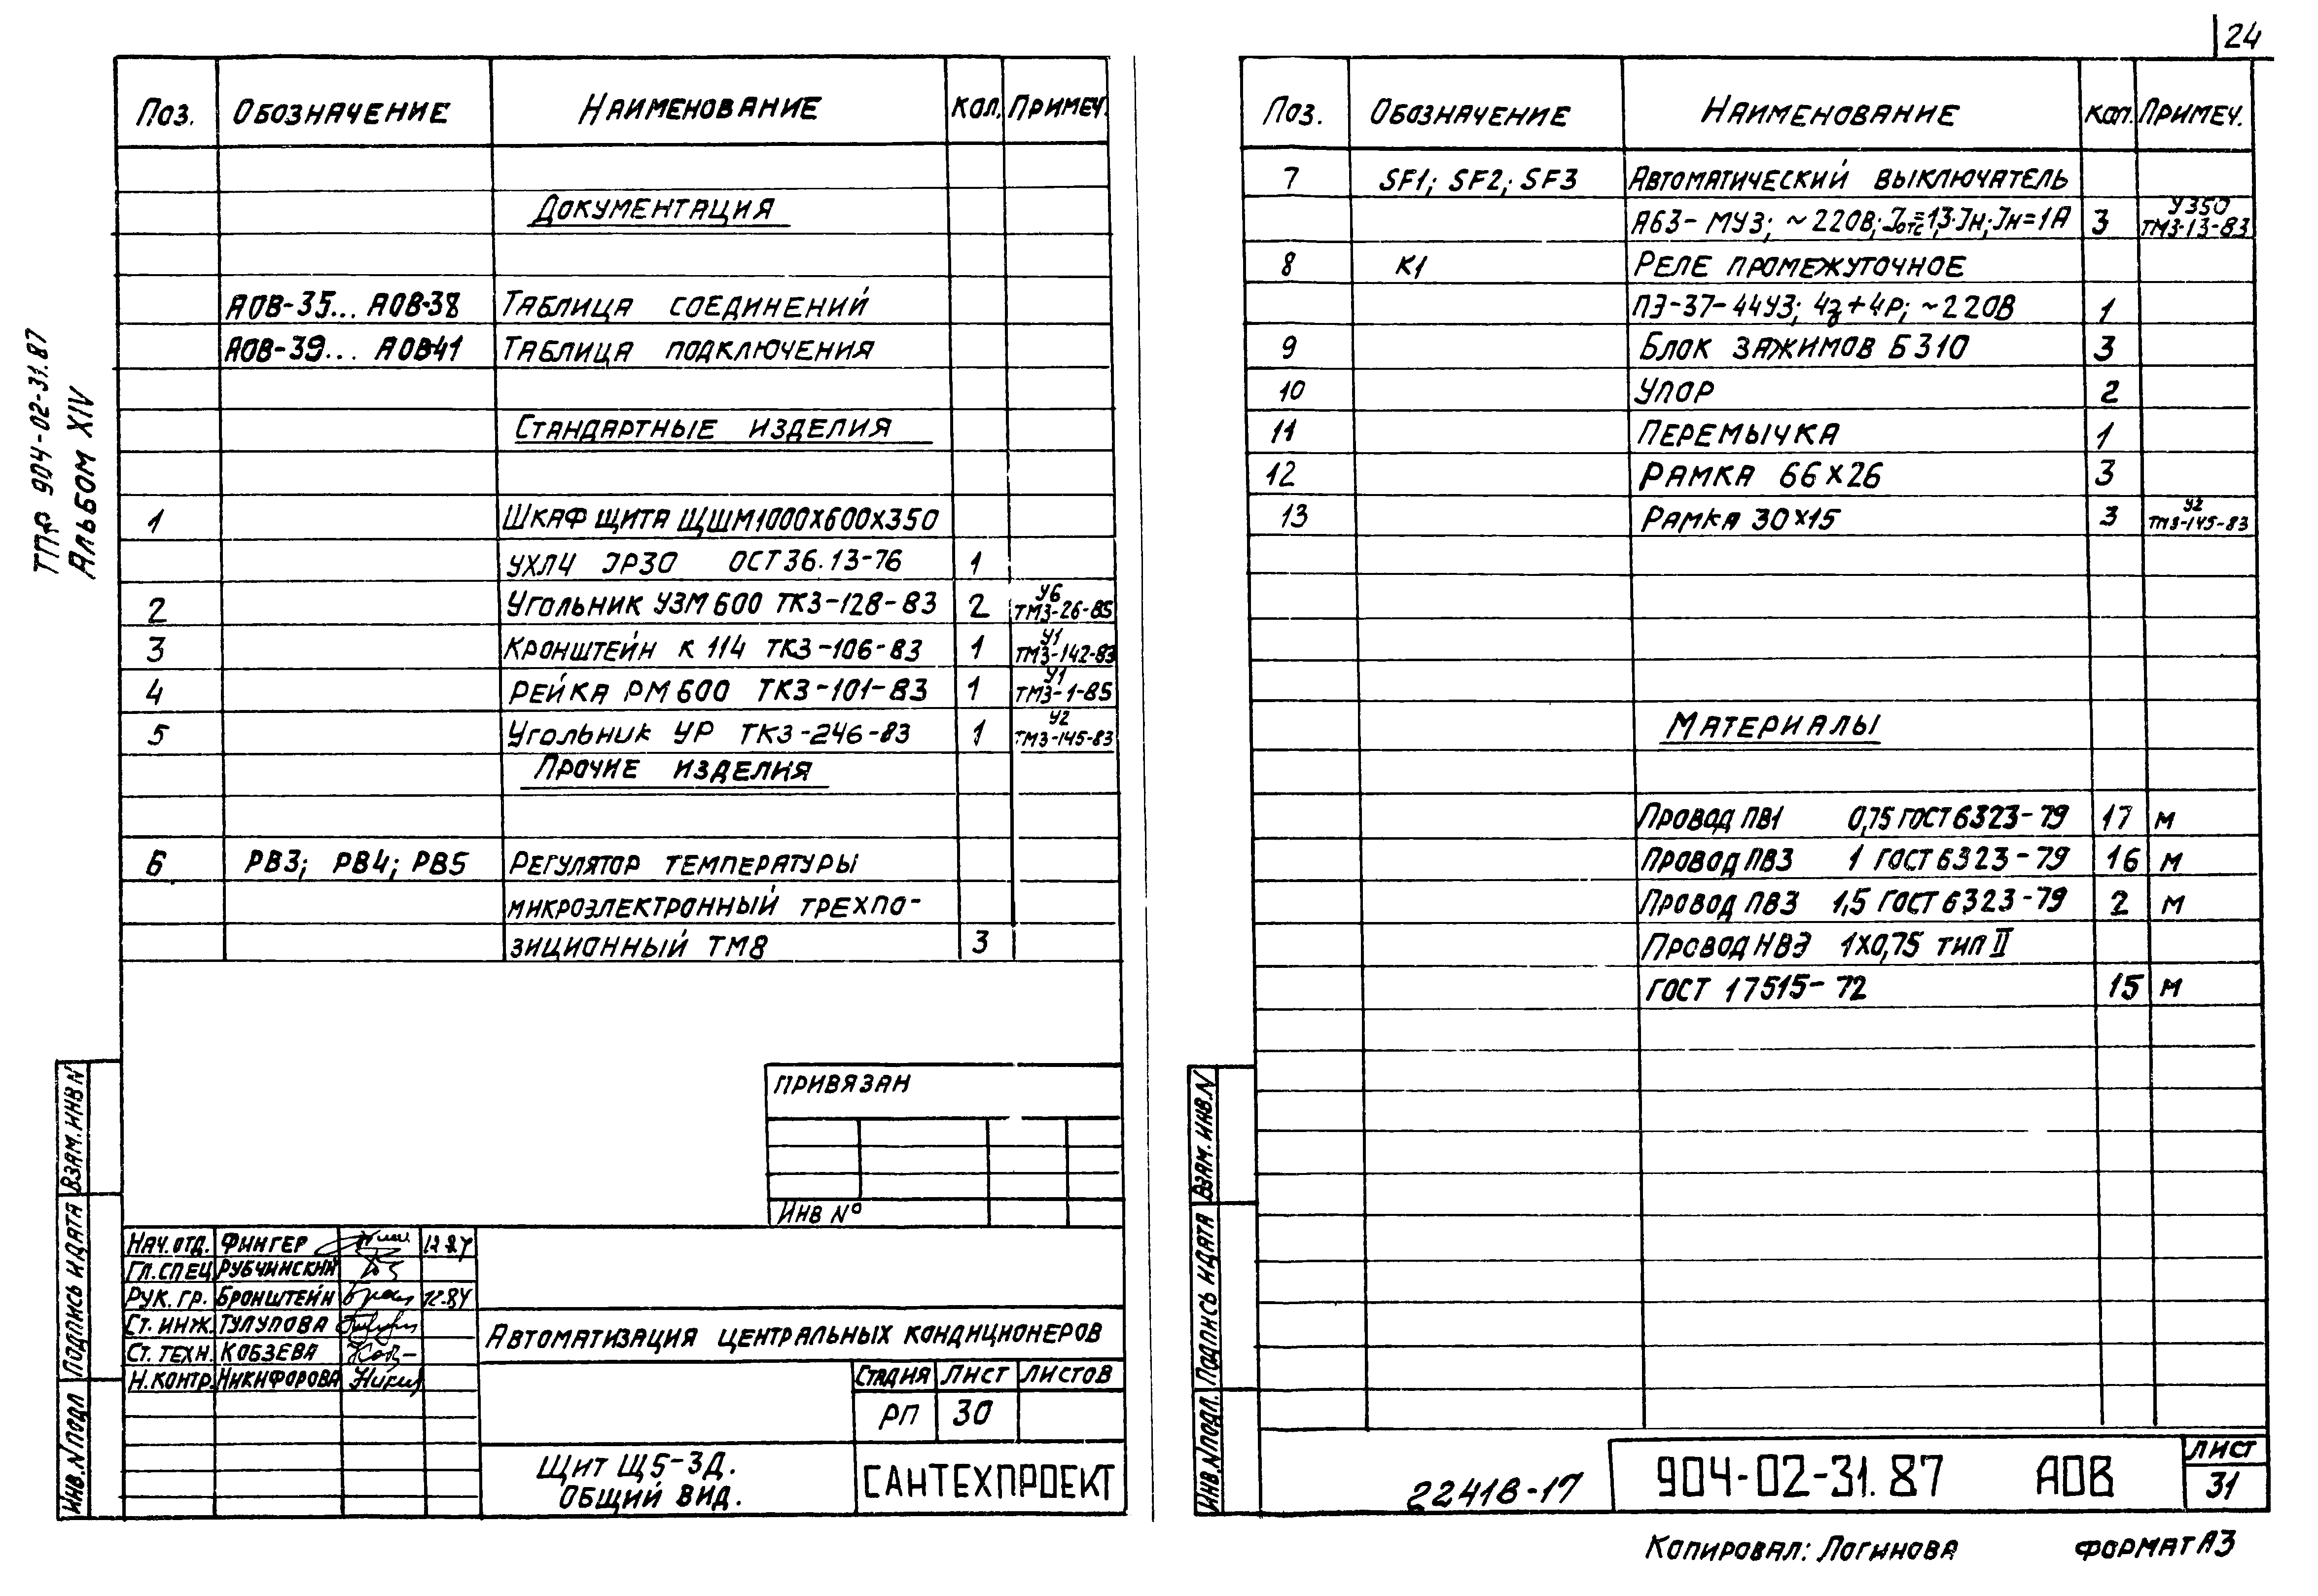 24
ТПР 904-02-31.87
Альбом XIV
Поз. Обозначение Наименование Кол. Примеч.
Документация
АОВ-35... АОВ-38 Таблица соединений
АОВ-39... АОВ-41 Таблица подключения
Стандартные изделия
1 Шкаф щита ЩШМ1000х600х350
УХЛ4 IP30 ОСТ36.13-76 1
2 Угольник УЗМ600 ТК3-128-83 2 У6 ТМ3-26-85
3 Кронштейн К 114 ТК3-106-83 1 У1 ТМ3-142-83
4 Рейка РМ600 ТК3-101-83 1 У1 ТМ3-1-85
5 Угольник УР ТК3-246-83 1 У2 ТМ3-145-83
Прочие изделия
6 РВ3; РВ4; РВ5 Регулятор температуры
микроэлектронный трехпо-
зиционный ТМ8 3
Привязан
Инв №
Нач. отд. Фингер 12.84
Гл. спец Рубчинский
Рук. гр. Бронштейн 12.84
Ст. инж. Тулупова
Ст. техн. Кобзева
Н. контр. Никифорова
Автоматизация центральных кондиционеров
Стадия Лист Листов
РП 30
Щит Щ5-3Д.
Общий вид.
САНТЕХПРОЕКТ
Взам. инв N
Подпись и дата
Инв. N подл
Поз. Обозначение Наименование Кол. Примеч.
7 SF1; SF2; SF3 Автоматический выключатель
А63-МУ3; ~220В; Jотс=1,3·Jн; Jн=1А 3 У350 ТМ3-13-83
8 К1 Реле промежуточное
ПЭ-37-44У3; 4з+4р; ~220В 1
9 Блок зажимов Б310 3
10 Упор 2
11 Перемычка 1
12 Рамка 66х26 3
13 Рамка 30х15 3 У2 ТМ3-145-83
Материалы
Провод ПВ1 0,75 ГОСТ 6323-79 17 м
Провод ПВ3 1 ГОСТ 6323-79 16 м
Провод ПВ3 1,5 ГОСТ 6323-79 2 м
Провод НВЭ 1х0,75 тип II
ГОСТ 17515-72 15 м
Взам. инв. N
Подпись и дата
Инв. N подл.
22418-17
904-02-31.87 АОВ
Лист
31
Копировал: Логинова Формат А3